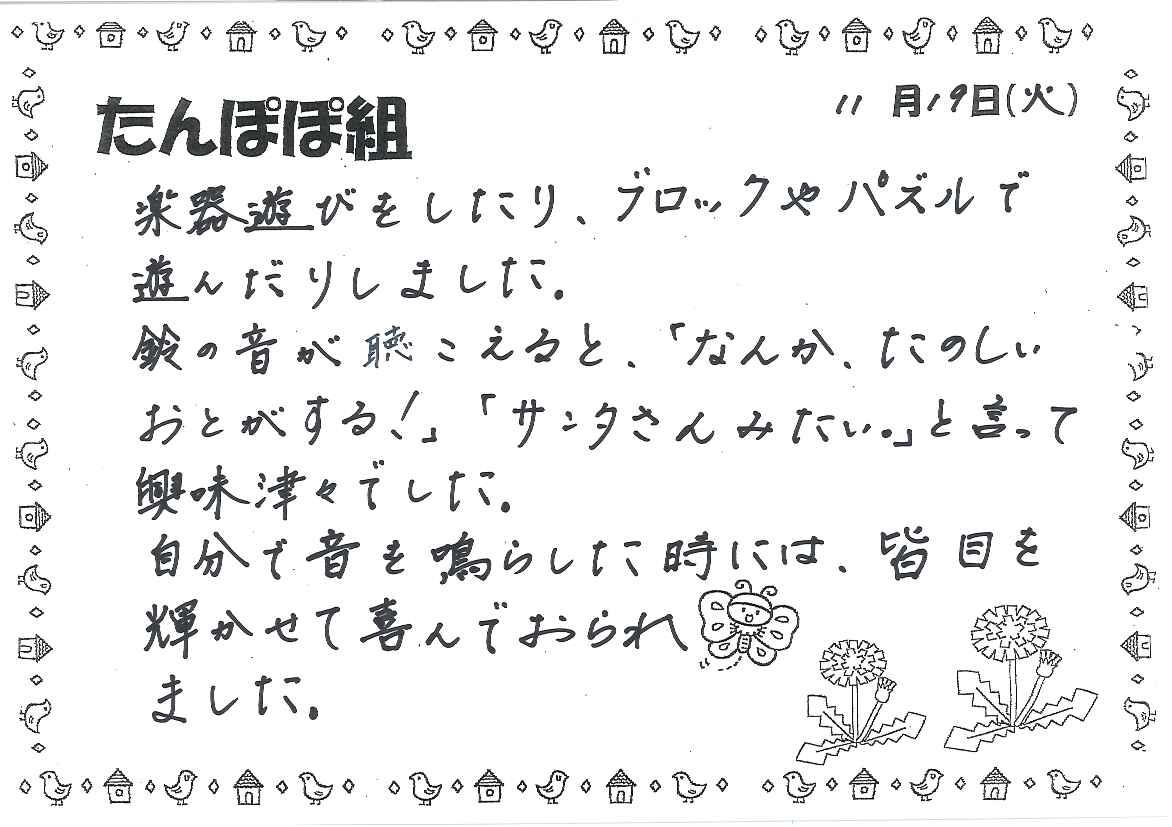 11月19日(火)
たんぽぽ組
楽器遊びをしたり、ブロックやパズルで
遊んだりしました。
鈴の音が聴こえると、「なんか、たのしい
おとがする!」「サンタさんみたい。」と言って
興味津々でした。
自分で音を鳴らした時には、皆目を
輝かせて喜んでおられ
ました。